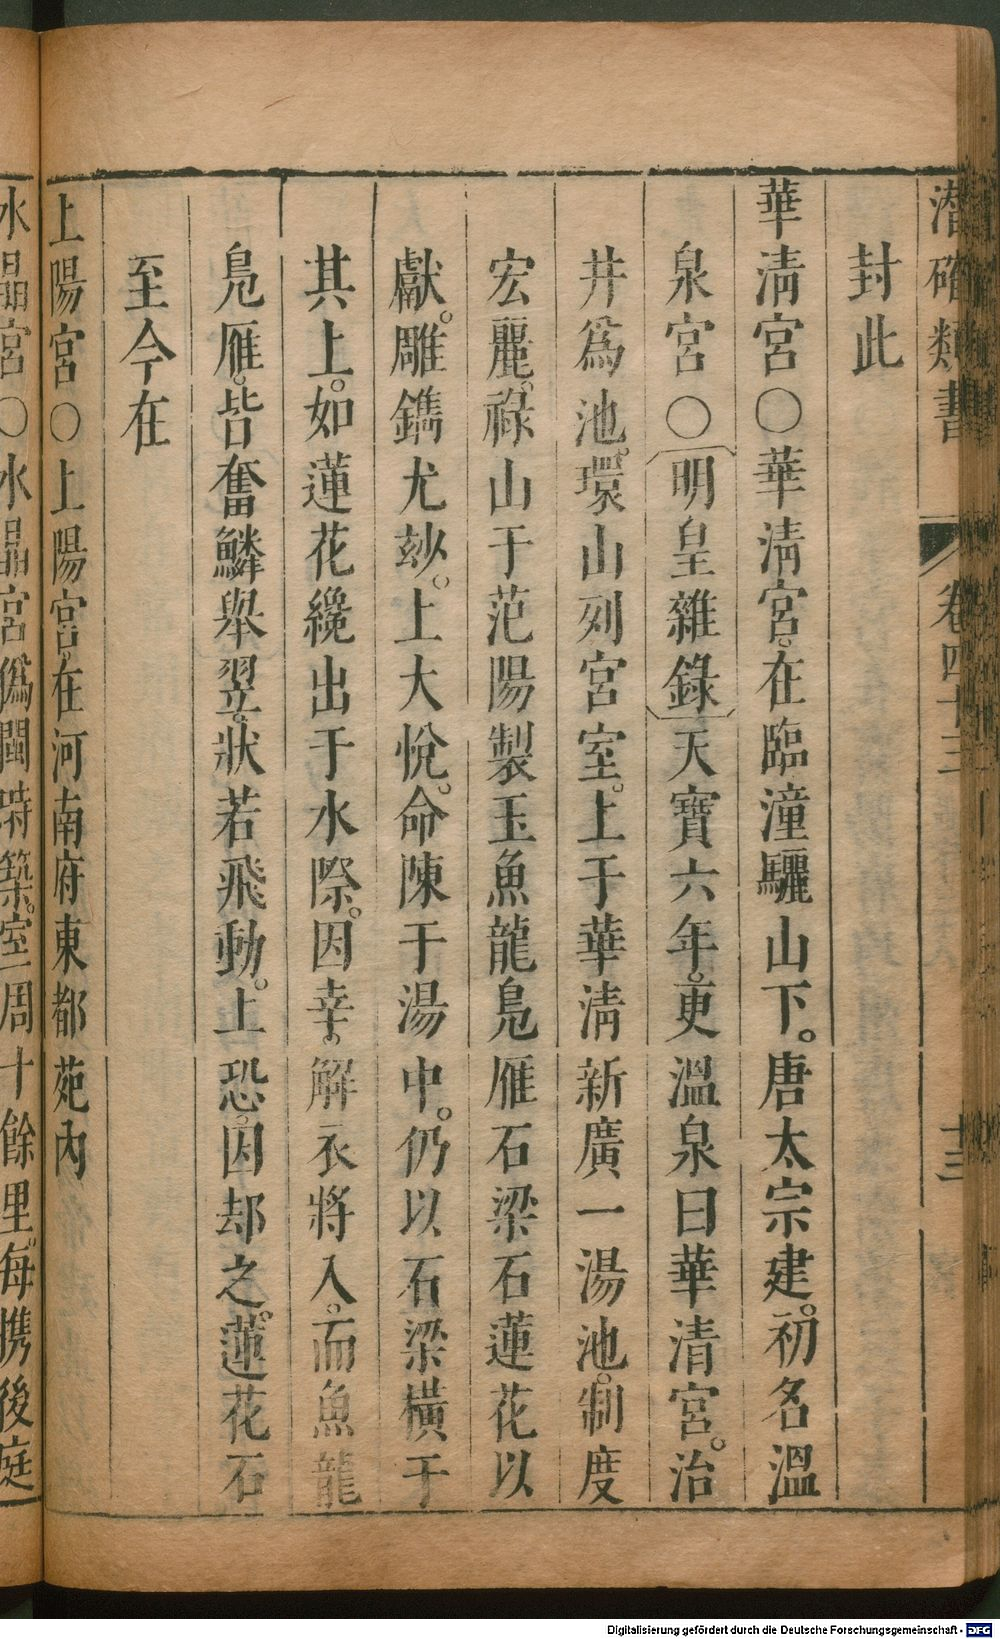 潛確類書 卷四十三 十三
封此
華淸宮○華淸宮。在臨潼驪山下。唐太宗建。初名溫
泉宮○明皇雜錄天寶六年。更溫泉曰華清宮。治
井爲池。環山列宮室。上于華淸新廣一湯池。制度
宏麗。祿山于范陽製玉魚龍鳧雁石梁石蓮花以
獻。雕鐫尤玅。上大悅。命陳于湯中。仍以石梁橫于
其上。如蓮花纔出于水際。因幸。解衣將入。而魚龍
鳧雁。皆奮鱗舉翌。狀若飛動。上恐。因却之。蓮花石
至今在
上陽宮○上陽宮。在河南府東都苑內
水晶宮○水晶宮僞閩時築。室周十餘里。每携後庭
Digitalisierung gefördert durch die Deutsche Forschungsgemeinschaft - DFG